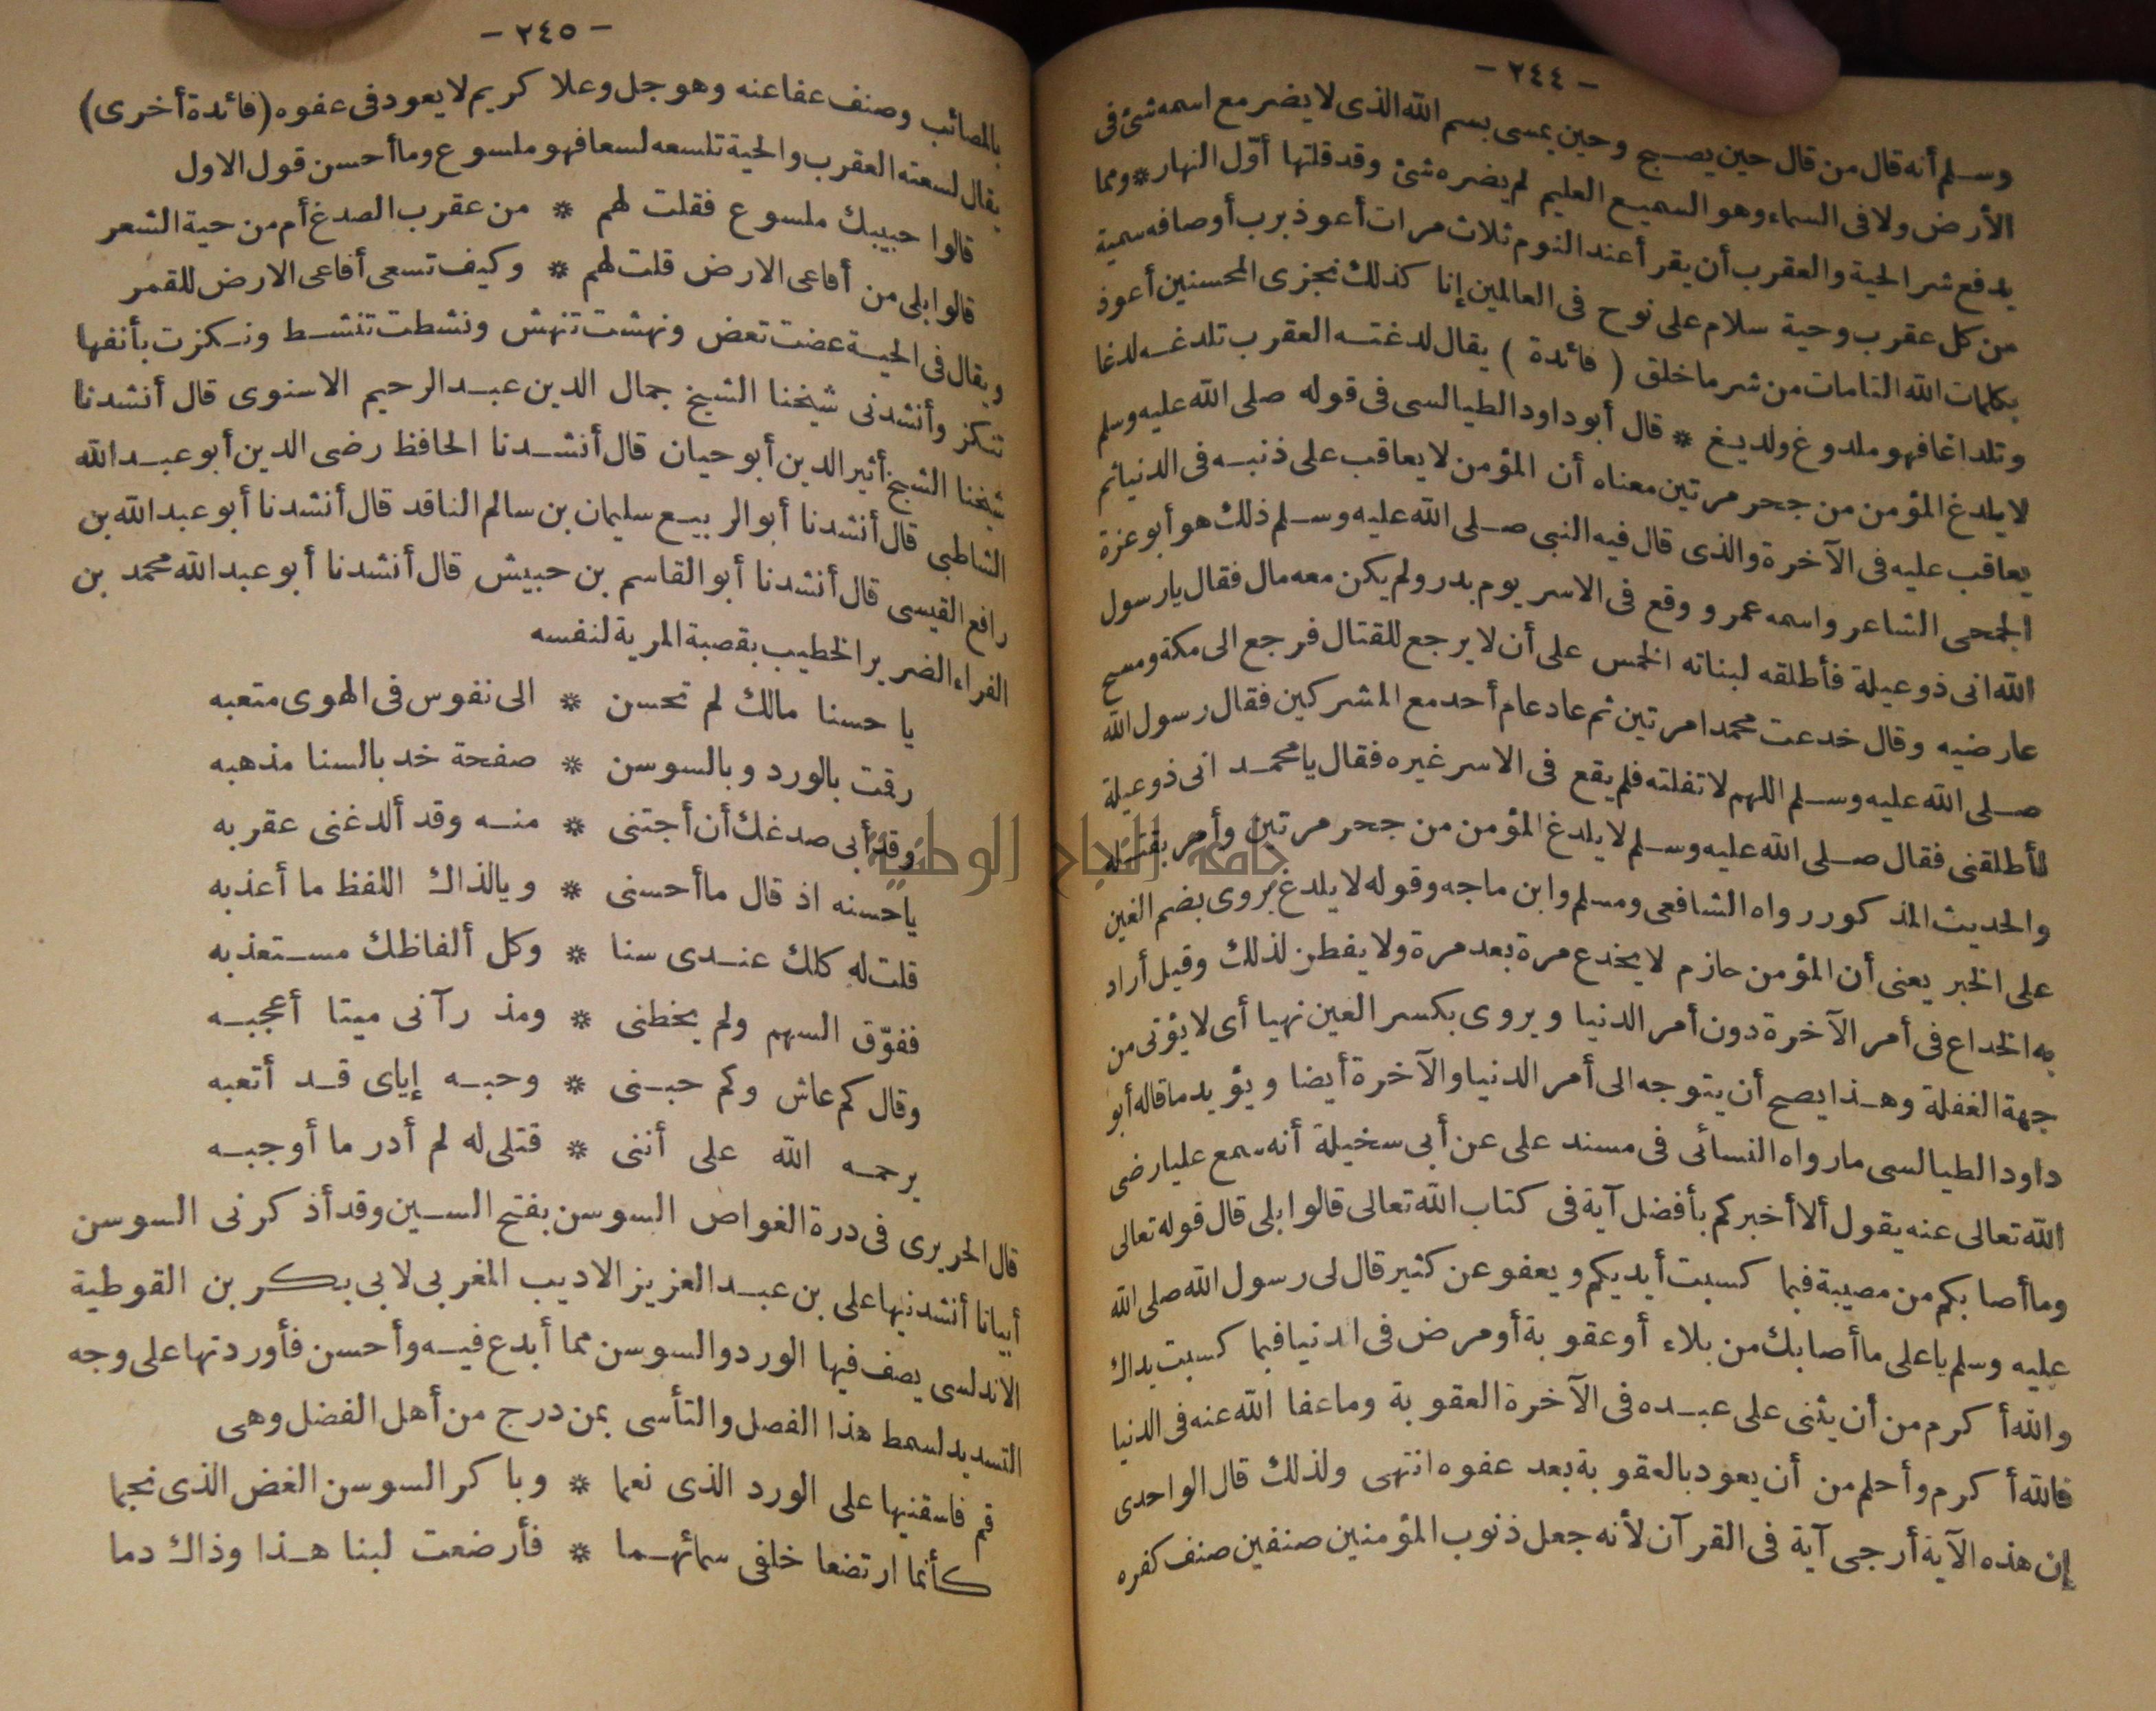 — ٢٤٤ —
وسلم أنه قال من قال حين يصبح وحين يمسى بسم الله الذى لا يضر مع اسمه شئ فى
الأرض ولا فى السماء وهو السميع العليم لم يضره شئ وقد قلتها أوّل النهار * ومما
يدفع شر الحية والعقرب أن يقرأ عند النوم ثلاث مرات أعوذ برب أوصافه سمية
من كل عقرب وحية سلام على نوح فى العالمين إنا كذلك نجزى المحسنين أعوذ
بكلمات الله التامات من شر ما خلق ( فائدة ) يقال لدغته العقرب تلدغه لدغا
وتلداغا فهو ملدوغ ولديغ * قال أبو داود الطيالسى فى قوله صلى الله عليه وسلم
لا يلدغ المؤمن من جحر مرتين معناه أن المؤمن لا يعاقب على ذنبه فى الدنيا ثم
يعاقب عليه فى الآخرة والذى قال فيه النبى صلى الله عليه وسلم ذلك هو أبو عزة
الجمحى الشاعر واسمه عمرو ووقع فى الاسر يوم بدر ولم يكن معه مال فقال يا رسول
الله انى ذو عيلة فأطلقه لبناته الخمس على أن لا يرجع للقتال فرجع الى مكة ومسح
عارضيه وقال خدعت محمدا مرتين ثم عاد عام أحد مع المشركين فقال رسول الله
صلى الله عليه وسلم اللهم لا تفلته فلم يقع فى الاسر غيره فقال يا محمد انى ذو عيلة
فأطلقنى فقال صلى الله عليه وسلم لا يلدغ المؤمن من جحر مرتين وأمر بقتله
والحديث المذكور رواه الشافعى ومسلم وابن ماجه وقوله لا يلدغ يروى بضم الغين
على الخبر يعنى أن المؤمن حازم لا يخدع مرة بعد مرة ولا يفطن لذلك وقيل أراد
به الخداع فى أمر الآخرة دون أمر الدنيا ويروى بكسر الغين نهيا أى لا يؤتى من
جهة الغفلة وهذا يصح أن يتوجه الى أمر الدنيا والآخرة أيضا ويؤيد ما قاله أبو
داود الطيالسى ما رواه النسائى فى مسند على عن أبى سخيلة أنه سمع عليا رضى
الله تعالى عنه يقول ألا أخبركم بأفضل آية فى كتاب الله تعالى قالوا بلى قال قوله تعالى
وما أصابكم من مصيبة فبما كسبت أيديكم ويعفو عن كثير قال لى رسول الله صلى الله
عليه وسلم يا على ما أصابك من بلاء أو عقوبة أو مرض فى الدنيا فبما كسبت يداك
والله أكرم من أن يثنى على عبده فى الآخرة العقوبة وما عفا الله عنه فى الدنيا
فالله أكرم وأحلم من أن يعود بالعقوبة بعد عفوه انتهى ولذلك قال الواحدى
إن هذه الآية أرجى آية فى القرآن لأنه جعل ذنوب المؤمنين صنفين صنف كفره
— ٢٤٥ —
بالمصائب وصنف عفا عنه وهو جل وعلا كريم لا يعود فى عفوه (فائدة أخرى)
يقال لسعته العقرب والحية تلسعه لسعا فهو ملسوع وما أحسن قول الاول
قالوا حبيبك ملسوع فقلت لهم * من عقرب الصدغ أم من حية الشعر
قالوا بلى من أفاعى الارض قلت لهم * وكيف تسعى أفاعى الارض للقمر
ويقال فى الحية عضت تعض ونهشت تنهش ونشطت تنشط ونكزت بأنفها
تنكز وأنشدنى شيخنا الشيخ جمال الدين عبد الرحيم الاسنوى قال أنشدنا
شيخنا الشيخ أثير الدين أبو حيان قال أنشدنا الحافظ رضى الدين أبو عبد الله
الشاطبى قال أنشدنا أبو الربيع سليمان بن سالم الناقد قال أنشدنا أبو عبد الله بن
رافع القيسى قال أنشدنا أبو القاسم بن حبيش قال أنشدنا أبو عبد الله محمد بن
الفراء الضرير الخطيب بقصبة المرية لنفسه
يا حسنا مالك لم تحسن * الى نفوس فى الهوى متعبه
رقمت بالورد وبالسوسن * صفحة خد بالسنا مذهبه
وقد أبى صدغك أن أجتنى * منه وقد ألدغنى عقربه
يا حسنه اذ قال ما أحسنى * ويا لذاك اللفظ ما أعذبه
قلت له كلك عندى سنا * وكل ألفاظك مستعذبه
ففوّق السهم ولم يخطنى * ومذ رآنى ميتا أعجبه
وقال كم عاش وكم حبنى * وحبه إياى قد أتعبه
يرحمه الله على أننى * قتلى له لم أدر ما أوجبه
قال الحريرى فى درة الغواص السوسن بفتح السين وقد أذكرنى السوسن
أبياتا أنشدنيها على بن عبد العزيز الاديب المغربى لابى بكر بن القوطية
الاندلسى يصف فيها الورد والسوسن مما أبدع فيه وأحسن فأوردتها على وجه
التسديد لسمط هذا الفصل والتأسى بمن درج من أهل الفضل وهى
قم فاسقنيها على الورد الذى نعما * وباكر السوسن الغض الذى نجما
كأنما ارتضعا خلفى سمائهما * فأرضعت لبنا هذا وذاك دما
جامعة النجاح الوطنية